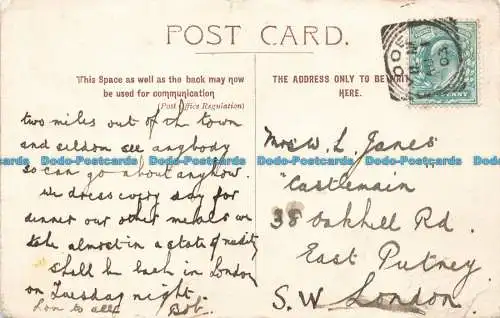 POST CARD.
This Space as well as the back may now
be used for communication
(Post Office Regulation)
THE ADDRESS ONLY TO BE
HERE.
two miles out of the town
and seldom see anybody
so can go about anyhow.
We dress every day for
dinner our other meals we
take almost in a state of nudity
shall be back in London
on Tuesday night.
Love to all Bob.
Mrs W. L. Janes
"Castlemain"
38 Oakhill Rd.
East Putney
S.W London
PENNY
Dodo-Postcards Dodo-Postcards Dodo-Postcards Dodo-Postcards
Dodo-Postcards Dodo-Postcards Dodo-Postcards Dodo-Postcards